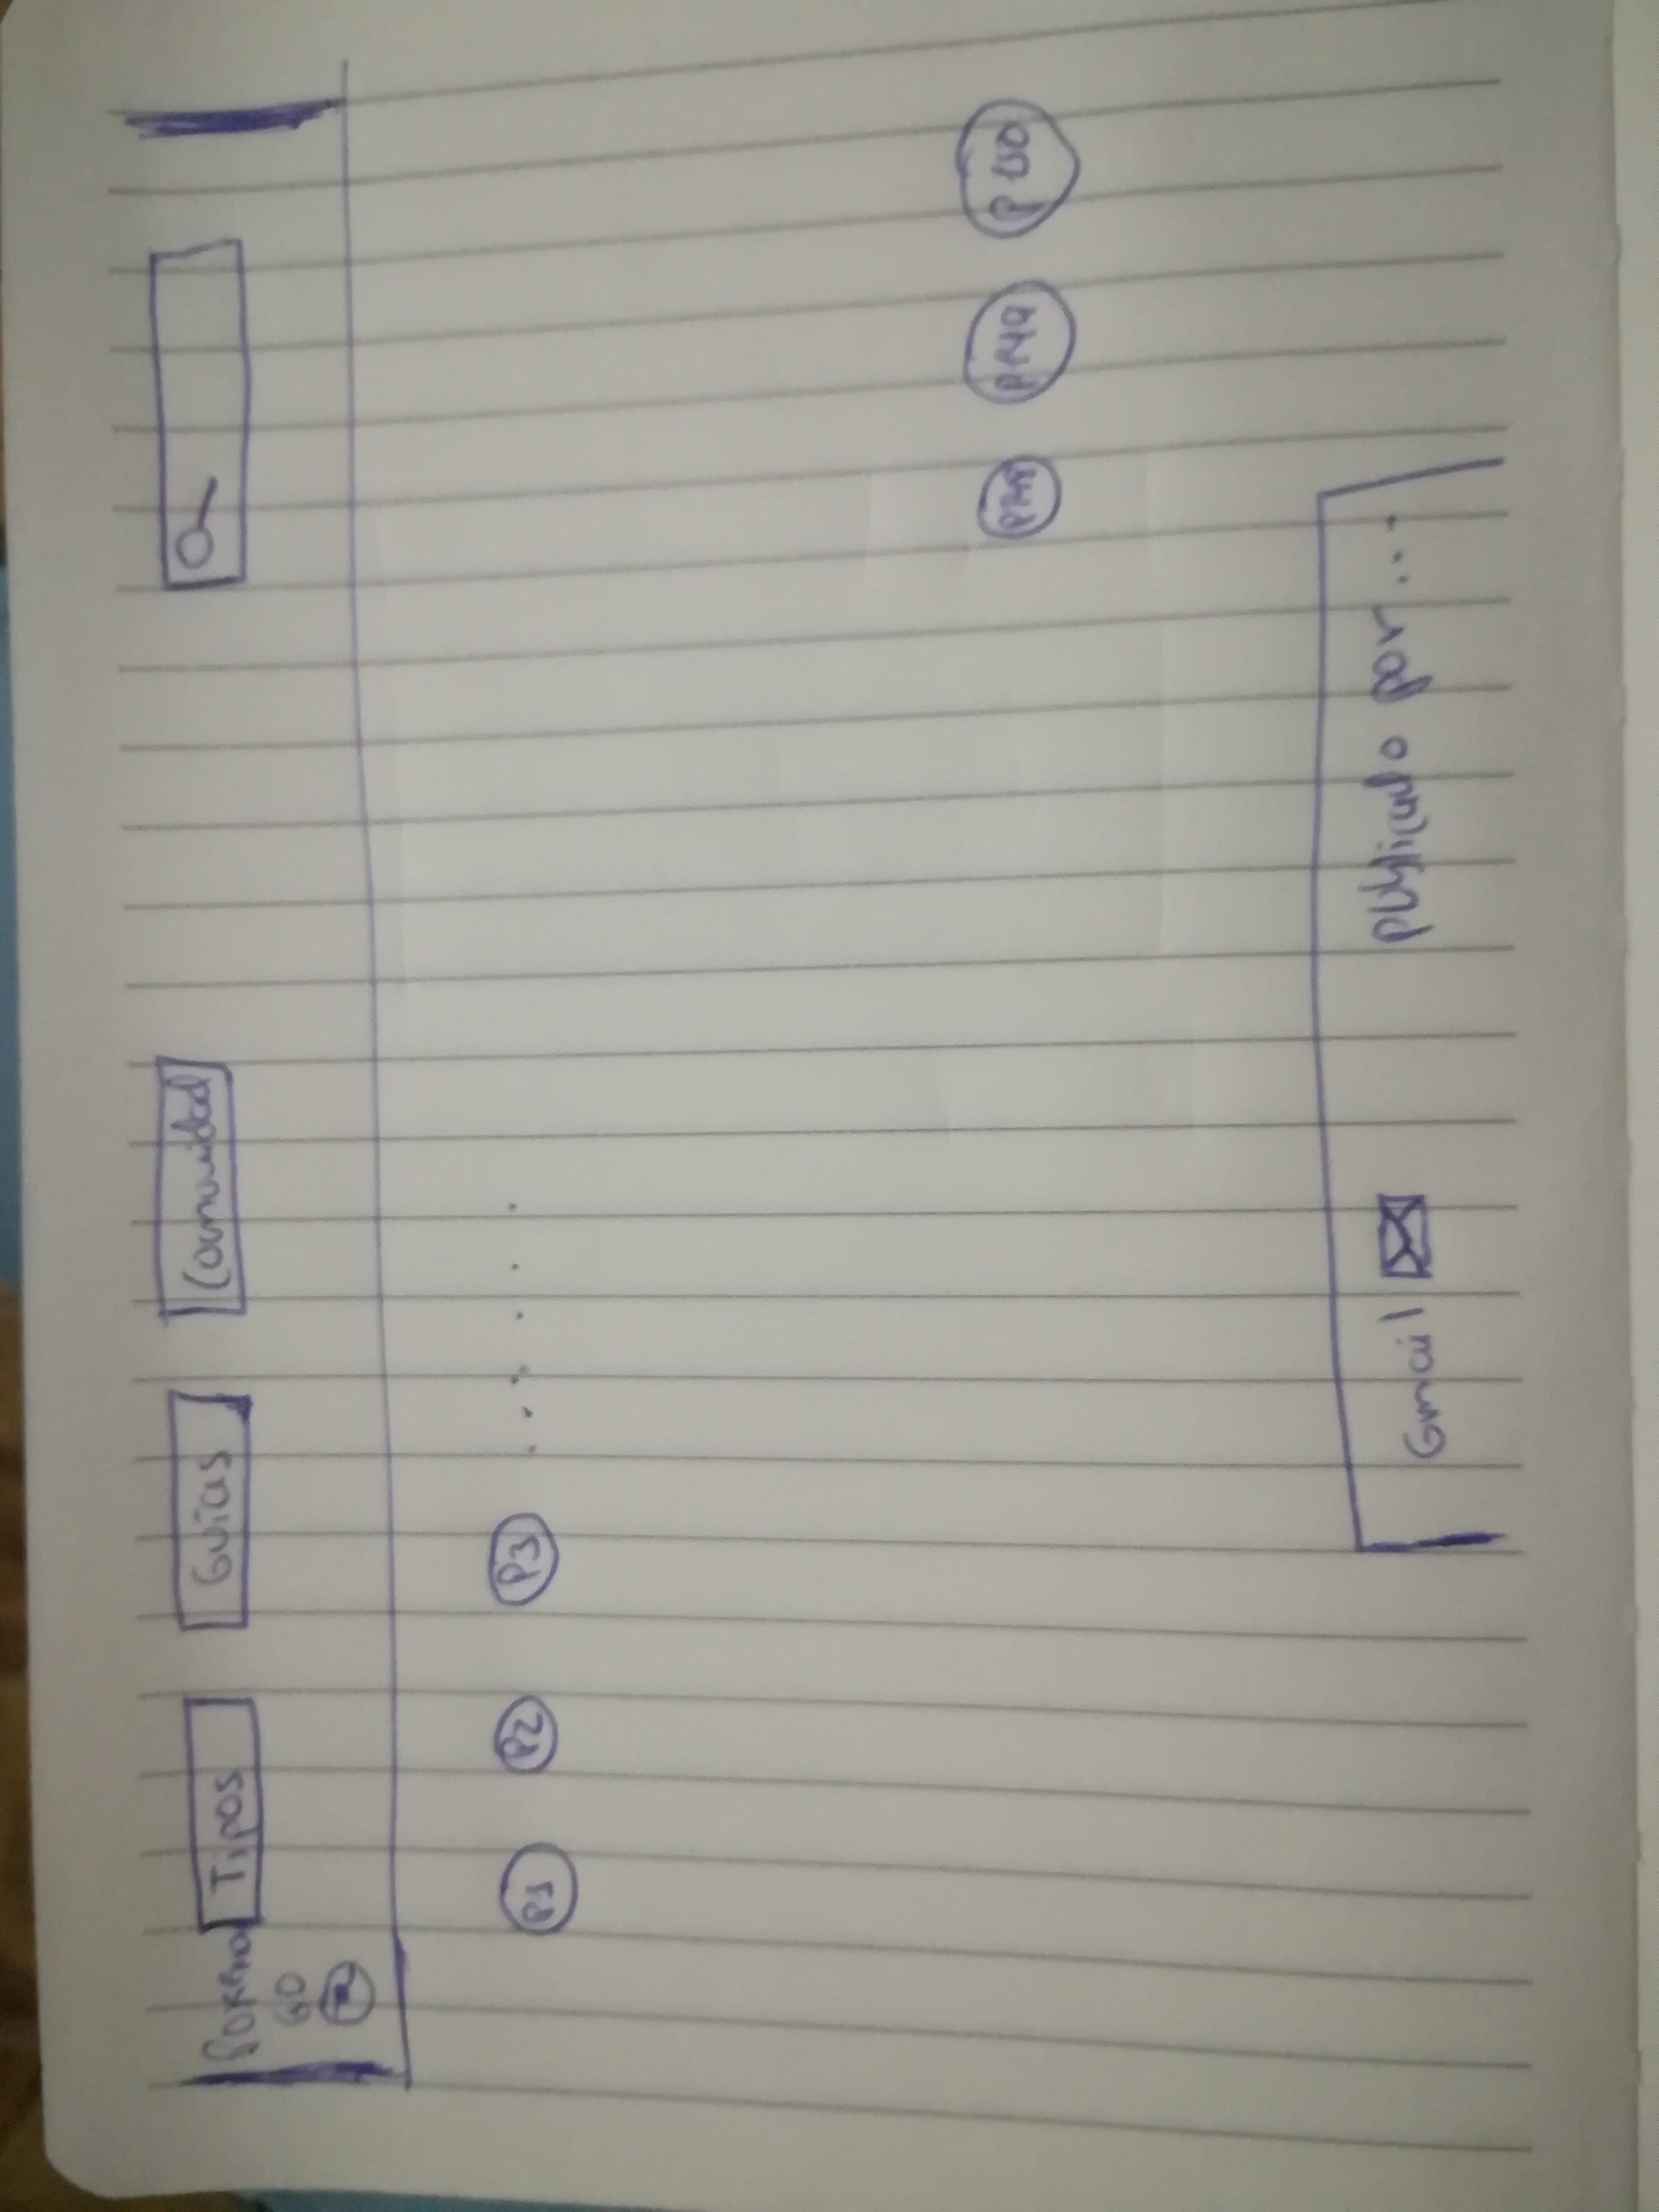 Pokemo Tipos Guías Comunidad
GO
P1 P2 P3 . . . . . .
P148 P149 P150
Gmail Publicado por...